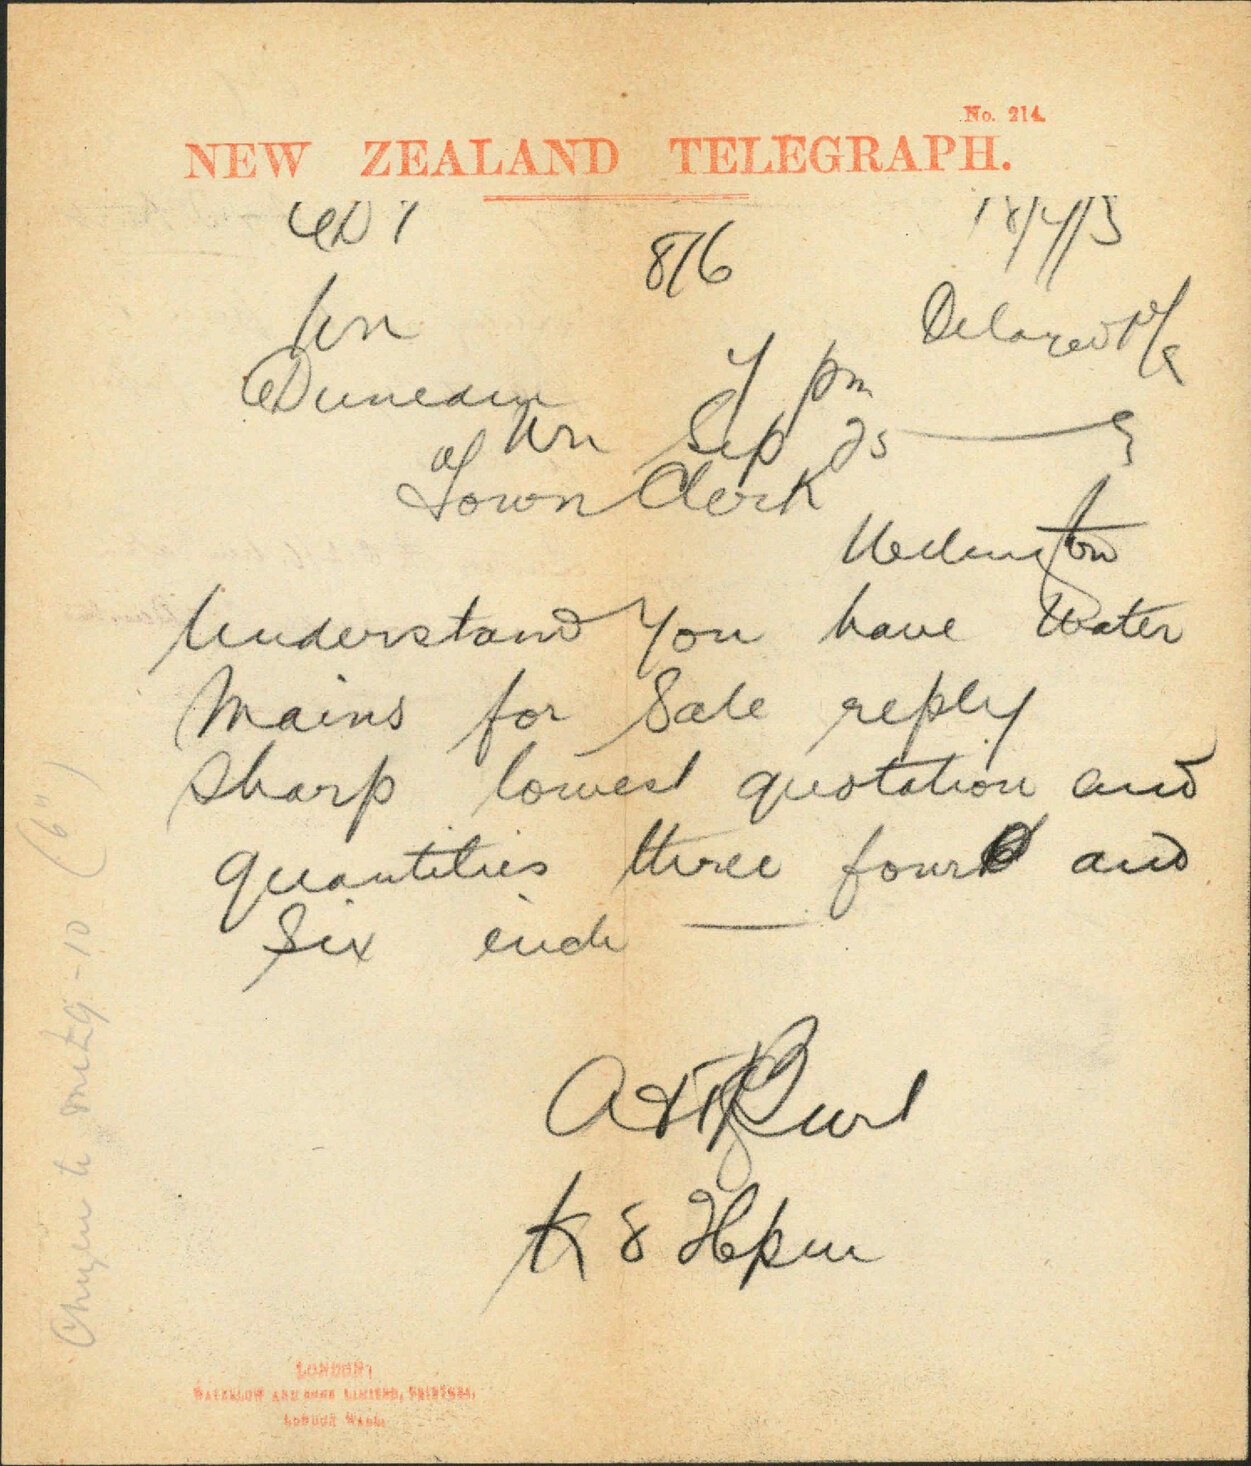 No. 214.
NEW ZEALAND TELEGRAPH.
18/4/5
876
Wn
Delayed
Dunedin 7 pm
Wn Sep 25
of
Town Clerk
Wellington
Understand you have Water
Mains for Sale reply
sharp lowest quotation and
quantities three four and
Six inch
A & T Burt
K 8 26 pm
(6")
LONDON:
WATERLOW AND SONS LIMITED, PRINTERS,
LONDON WALL.